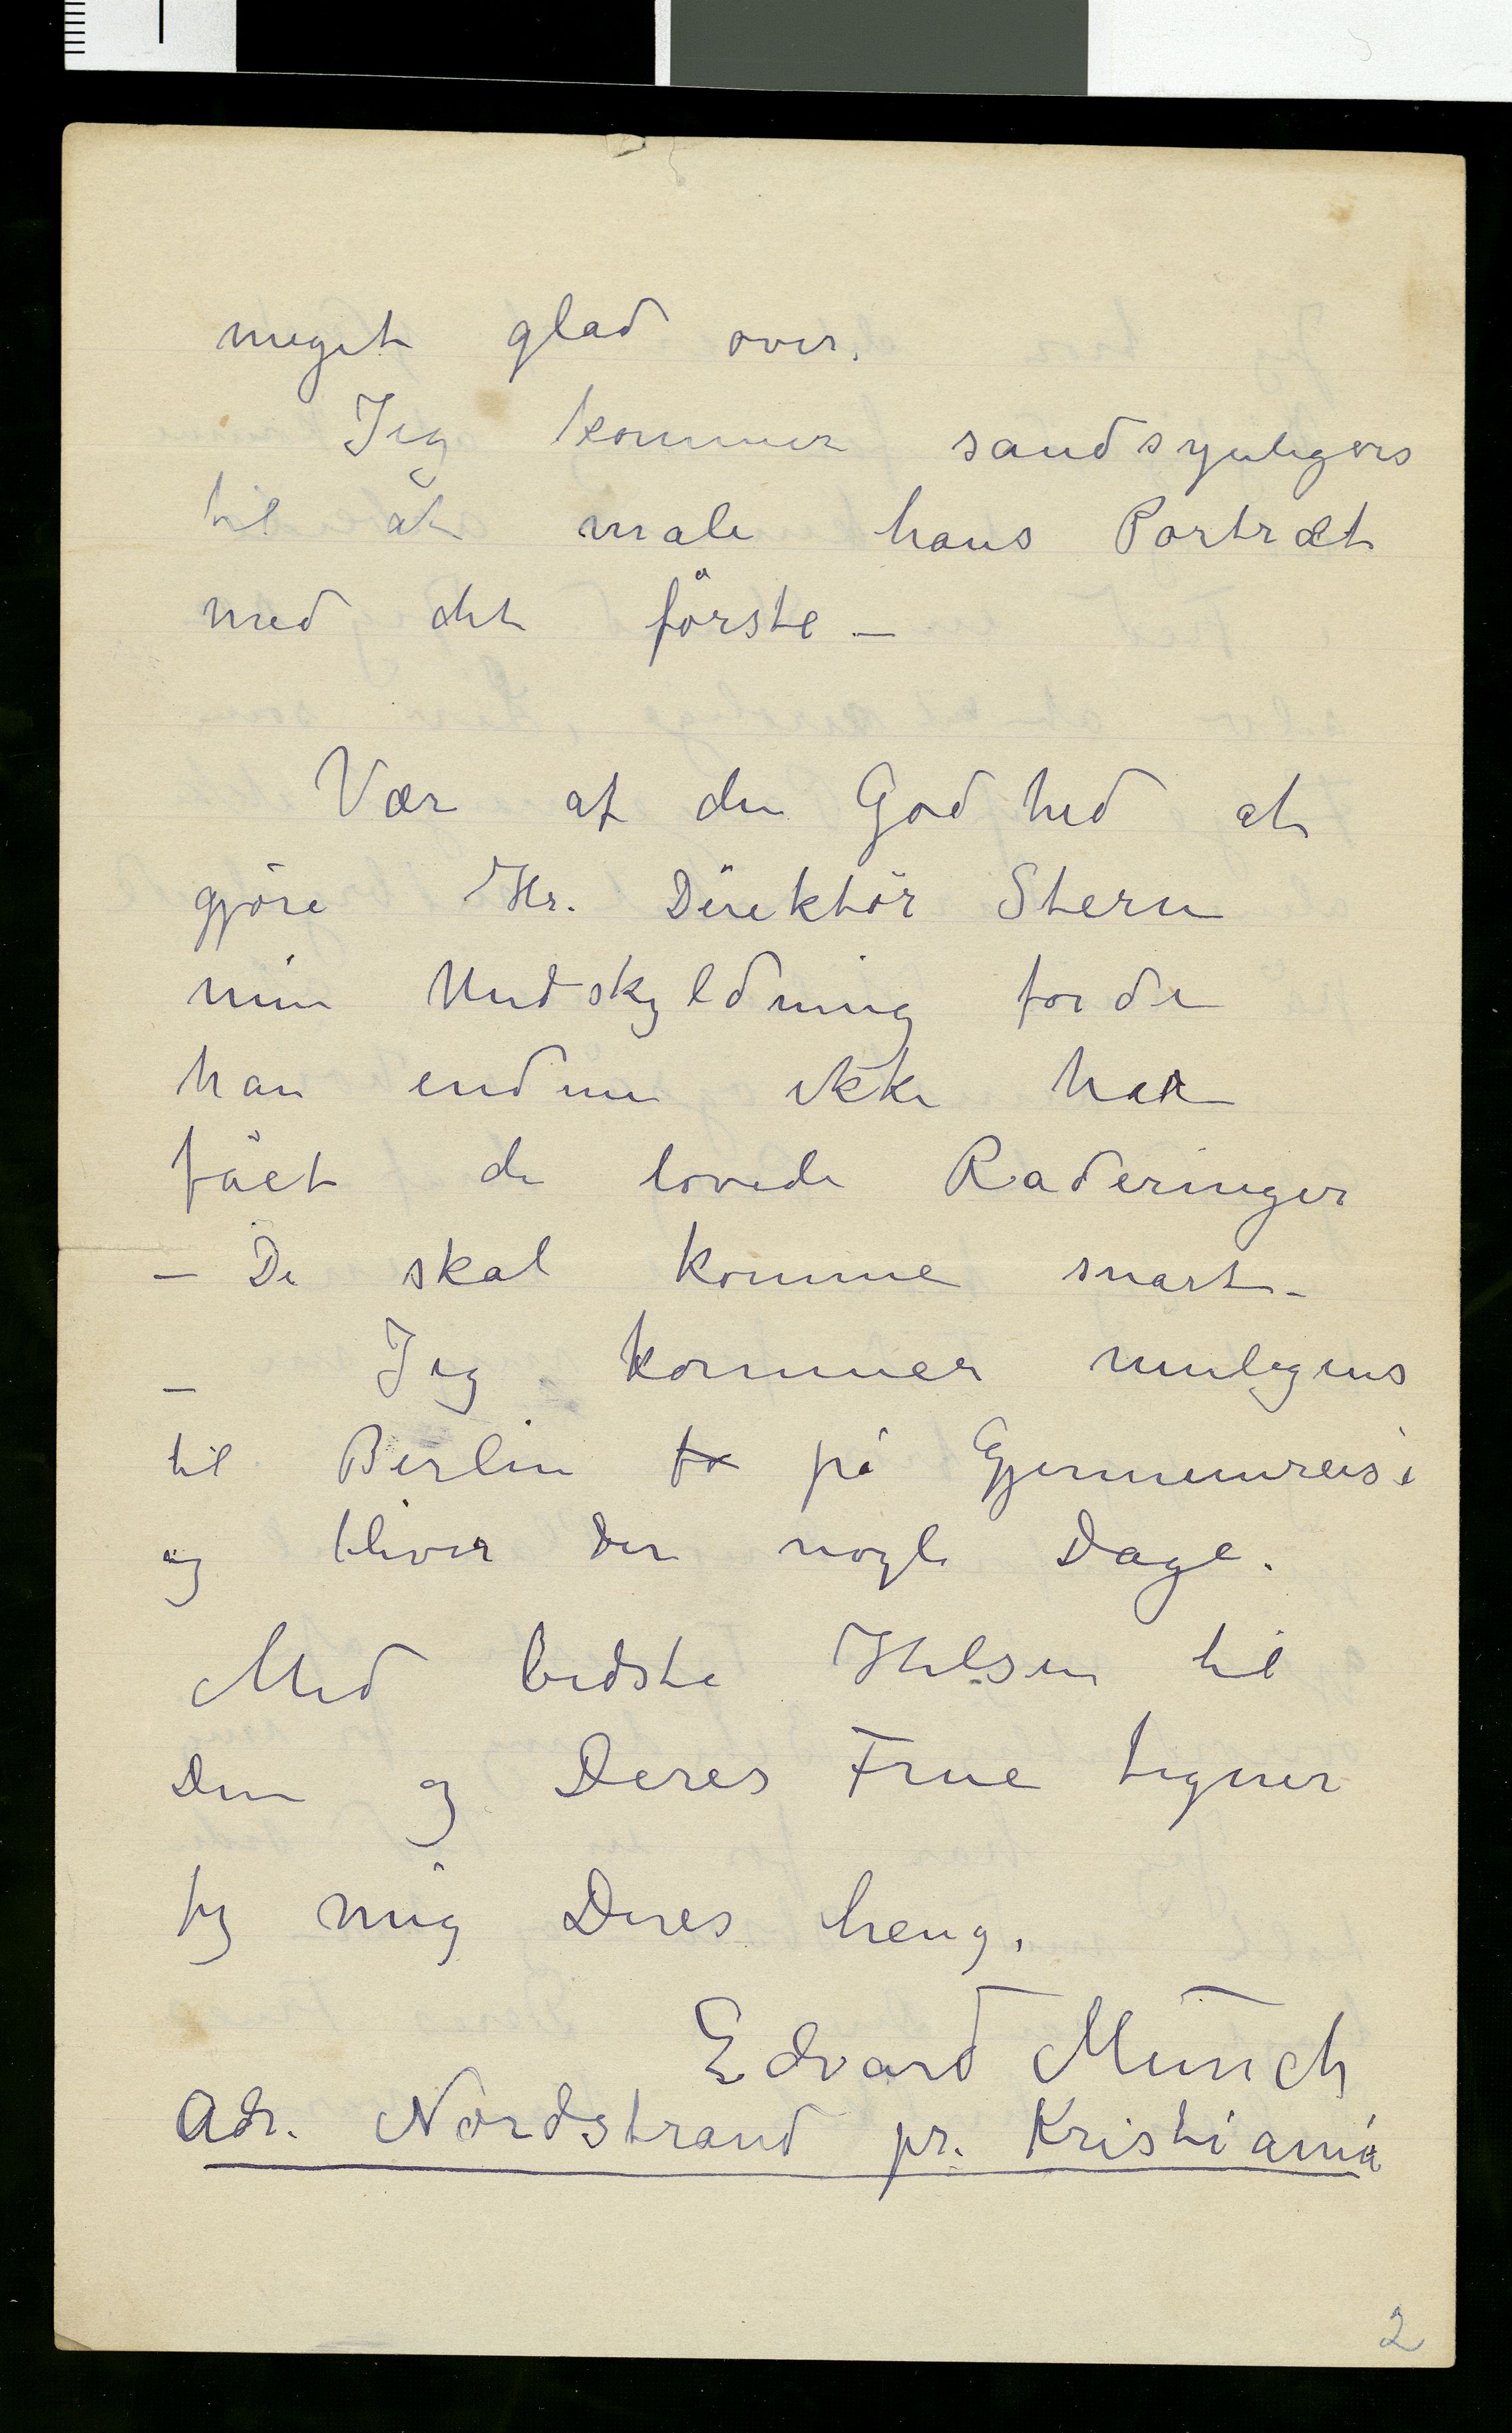 meget glad over.
Jeg kommer sandsynligvis
til at male hans Portræt
med det første –
Vær af den Godhed at
gjöre Hr. Direktör Stern
min Undskyldning fordi
han endnu ikke har
fået de lovede Raderinger
– De skal komme snart –
– Jeg kommer muligens
til Berlin fo på Gjennemreise
og bliver der nogle Dage.
Med bedste Hilsen til
Dem og Deres Frue tegner
jeg mig Deres heng.
Edvard Munch
Adr. Nordstrand pr. Kristiania
2